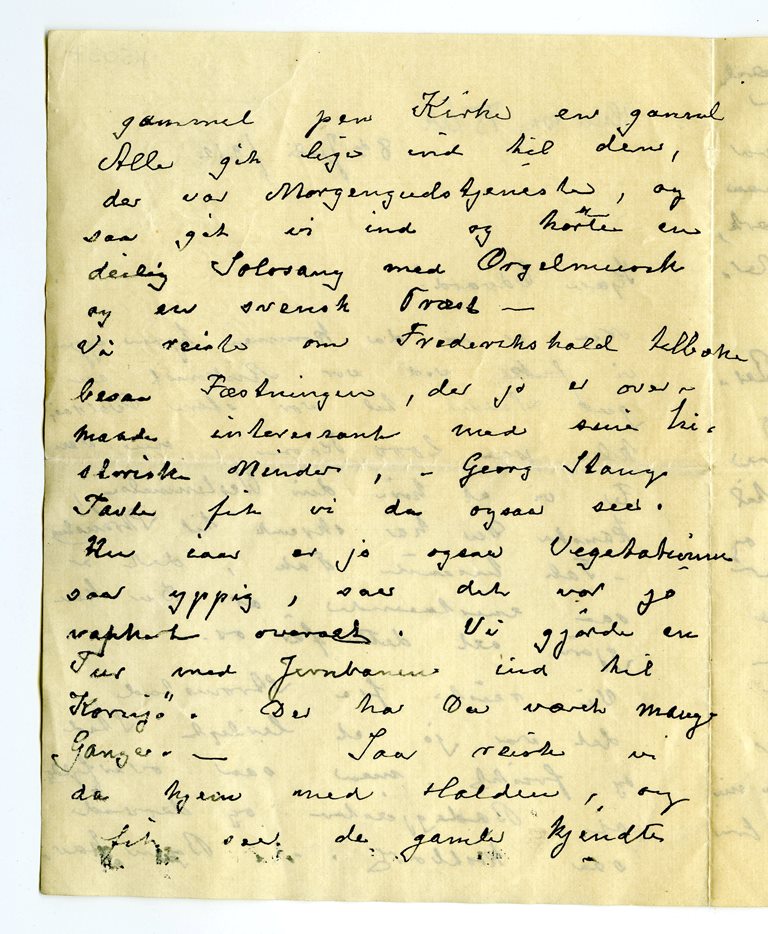 gammel pen Kirke en gammel
Alle gik lige ind til den,
der var Morgengudstjeneste, og
saa gik vi ind og hørte en
deilig Solosang med Orgelmusik
og en svensk Præst —
Vi reiste om Frederikshald tilbake
besaa Fæstningen, der jo er over-
maade interessant med sine hi-
storiske Minder, - Georg Stang
Tavle fik vi da ogsaa see.
Nu iaar er jo ogsaa Vegetationen
saa yppig, saa det var jo
vakkert overalt. Vi gjorde en
Tur med Jernbanen ind til
Kornsjö. Der har Du været mange
Gange. — Saa reiste vi
da hjem med Halden, og
fik see de gamle kjendte